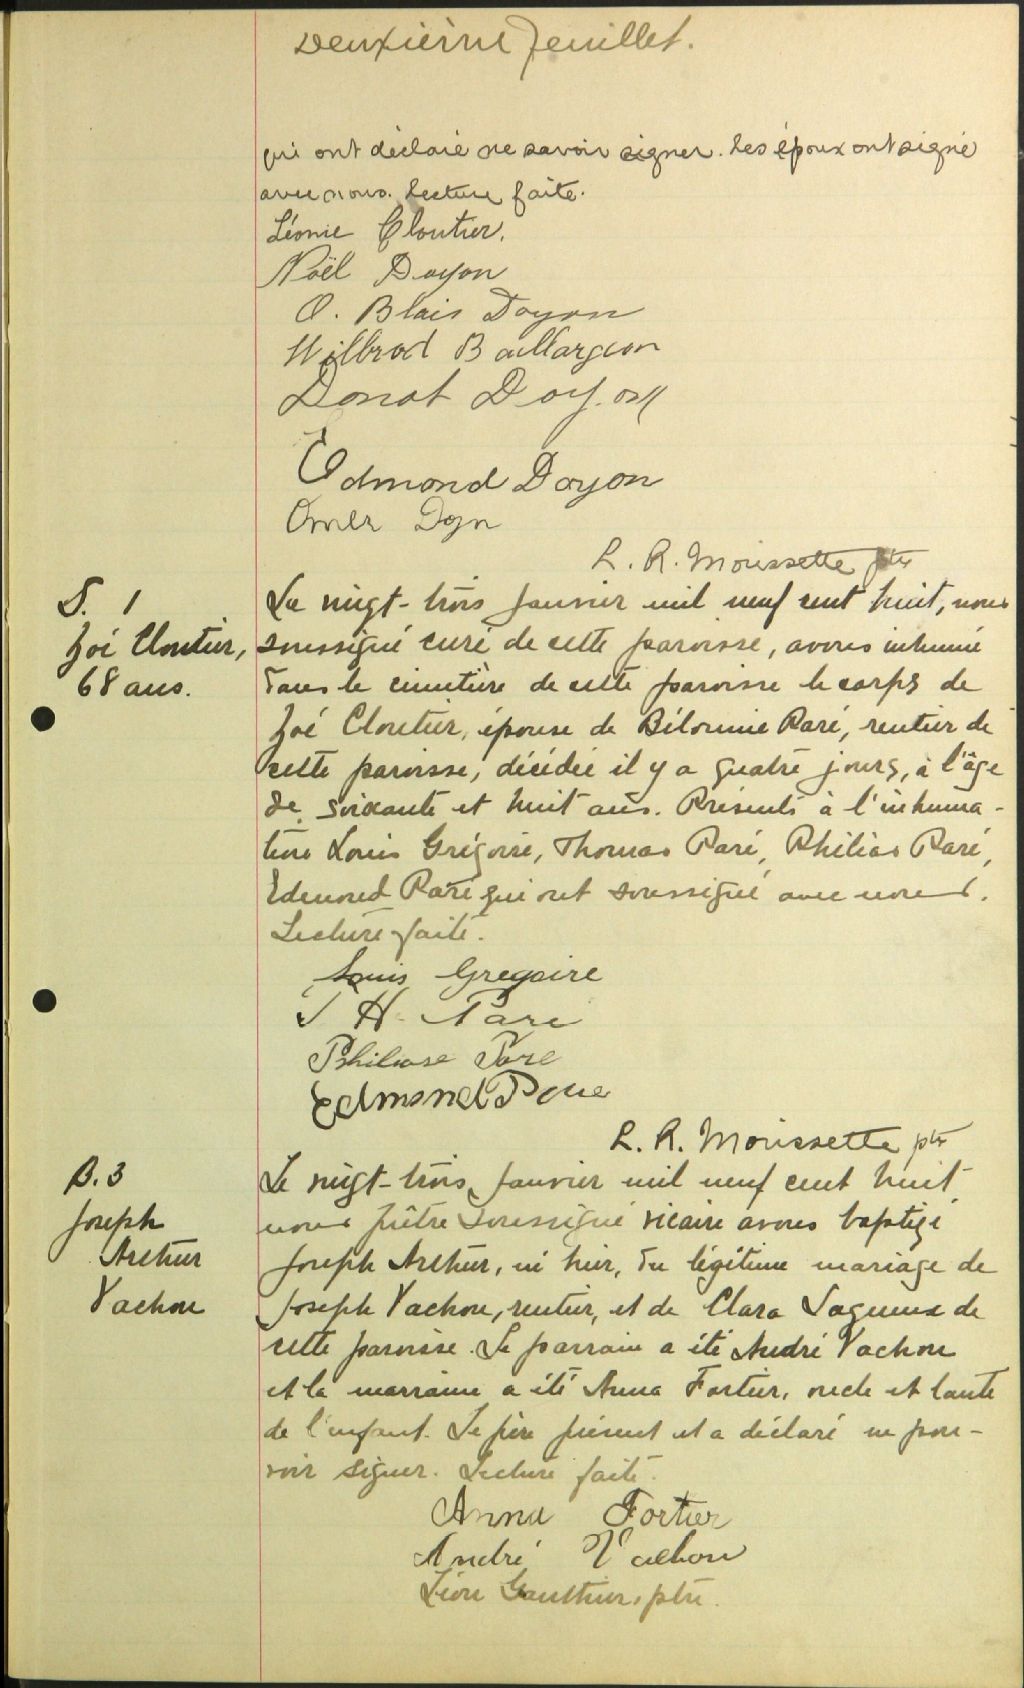 Deuxième feuillet.
qui ont déclaré ne savoir signer. Les époux ont signé
avec nous. Lecture faite.
Léonie Cloutier.
Noël Doyon
O. Blais Doyon
Wilbrod Baillargeon
Donat Doyon
Edmond Doyon
Omer Doyn
L. R. Morissette ptre
S. 1
Zoé Cloutier,
68 ans.
Le vingt-trois Janvier mil neuf cent huit, nous
soussigné curé de cette paroisse, avons inhumé
dans le cimetière de cette paroisse le corps de
Zoé Cloutier, épouse de Bélonnie Paré, rentier de
cette paroisse, décédée il y a quatre jours, à l'âge
de soixante et huit ans. Présents à l'inhuma-
tion Louis Grégoire, Thomas Paré, Philias Paré,
Edmond Paré qui ont soussigné avec nous.
Lecture faite.
Louis Gregoire
J H. Pare
Philiase Pare
Edmond Pare
L. R. Morissette ptr
B. 3
Joseph
Arthur
Vachon
Le vingt-trois Janvier mil neuf cent huit
nous prêtre soussigné vicaire avons baptizé
Joseph Arthur, né hier, du légitime mariage de
Joseph Vachon, rentier, et de Clara Lagueux de
cette paroisse. Le parrain a été André Vachon
et la marraine a été Anna Fortier, oncle et tante
de l'enfant. Le père présent et a déclaré ne pou-
voir signer. Lecture faite.
Anna Fortier
André Vachon
Léon Gauthier, ptre.